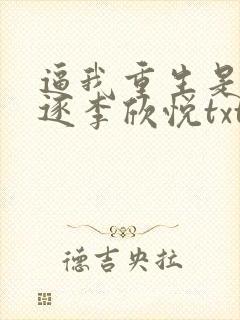 逼我重生是
逐李欣悦txt
德吉央拉